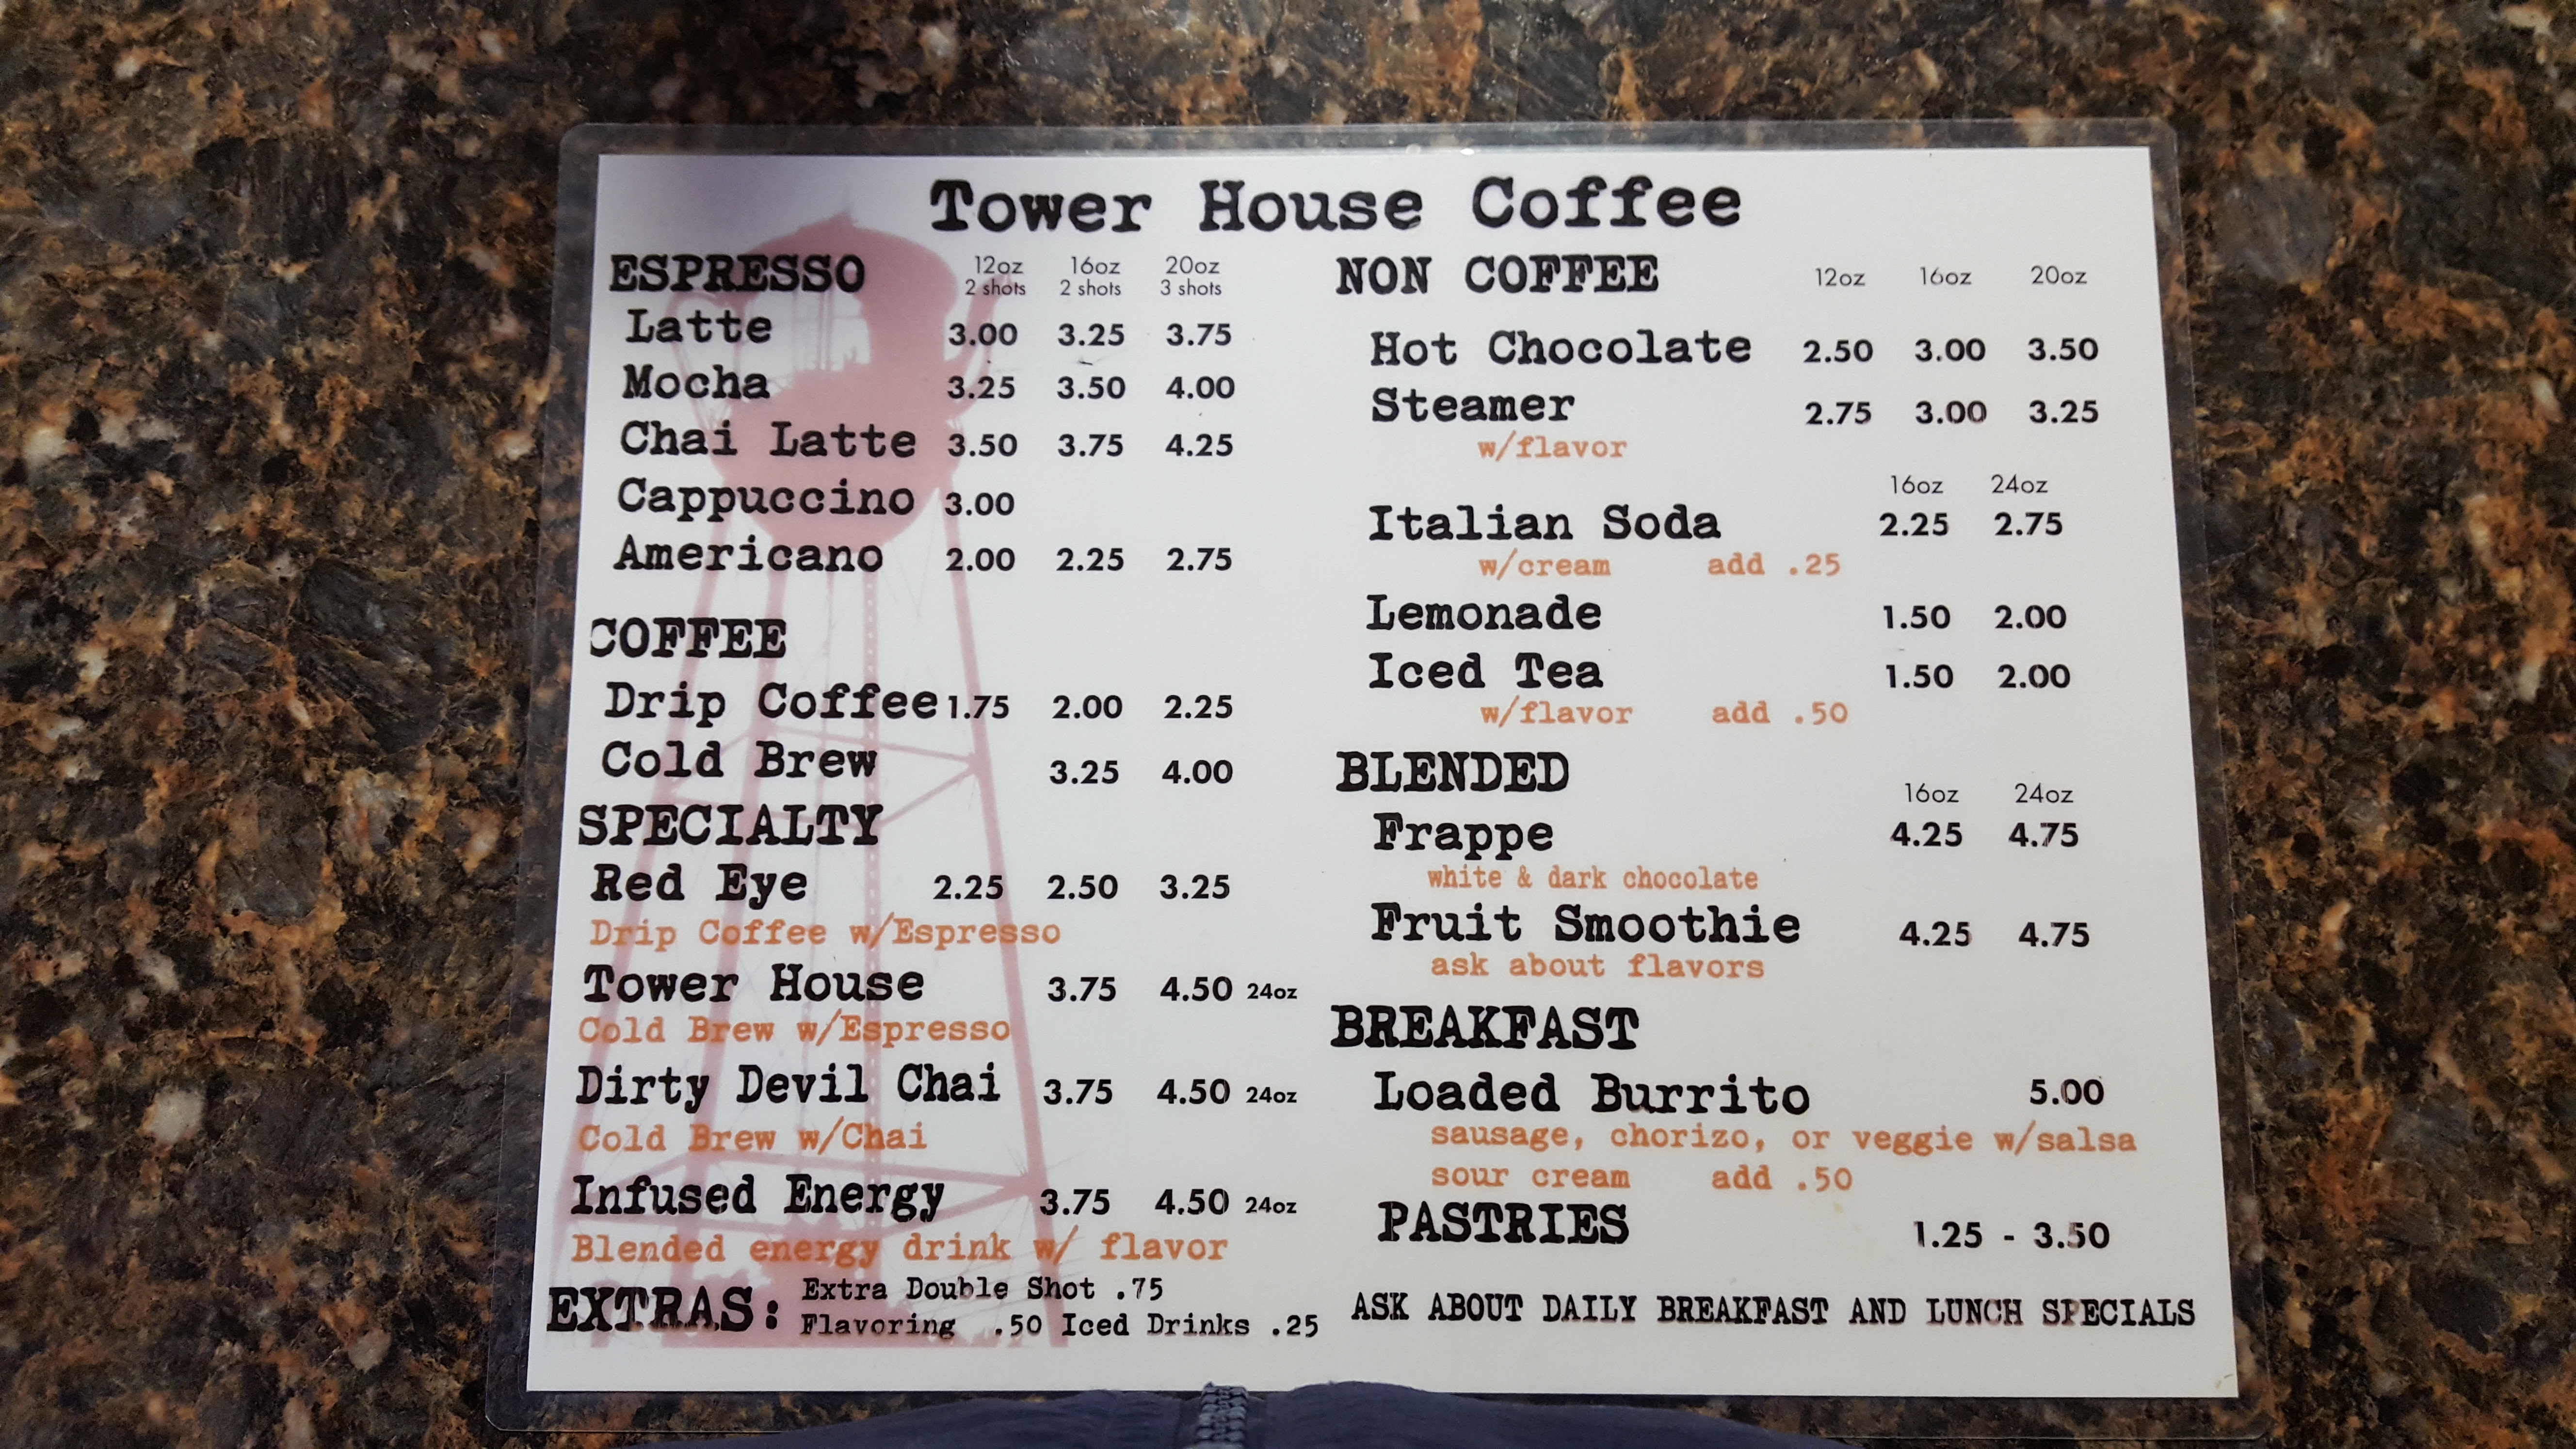 Tower House Coffee
ESPRESSO 12oz 16oz 20oz
2 shots 2 shots 3 shots
Latte 3.00 3.25 3.75
Mocha 3.25 3.50 4.00
Chai Latte 3.50 3.75 4.25
Cappuccino 3.00
Americano 2.00 2.25 2.75
COFFEE
Drip Coffee 1.75 2.00 2.25
Cold Brew 3.25 4.00
SPECIALTY
Red Eye 2.25 2.50 3.25
Drip Coffee w/Espresso
Tower House 3.75 4.50 24oz
Cold Brew w/Espresso
Dirty Devil Chai 3.75 4.50 24oz
Cold Brew w/Chai
Infused Energy 3.75 4.50 24oz
Blended energy drink w/ flavor
EXTRAS: Extra Double Shot .75
Flavoring .50 Iced Drinks .25
NON COFFEE 12oz 16oz 20oz
Hot Chocolate 2.50 3.00 3.50
Steamer 2.75 3.00 3.25
w/flavor
16oz 24oz
Italian Soda 2.25 2.75
w/cream add .25
Lemonade 1.50 2.00
Iced Tea 1.50 2.00
w/flavor add .50
BLENDED
16oz 24oz
Frappe 4.25 4.75
white & dark chocolate
Fruit Smoothie 4.25 4.75
ask about flavors
BREAKFAST
Loaded Burrito 5.00
sausage, chorizo, or veggie w/salsa
sour cream add .50
PASTRIES 1.25 - 3.50
ASK ABOUT DAILY BREAKFAST AND LUNCH SPECIALS